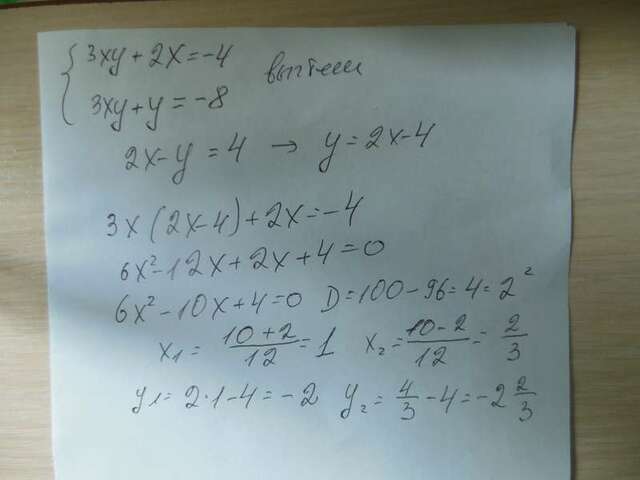 {3xy + 2x = -4
3xy + y = -8 вычтем
2x - y = 4 → y = 2x - 4
3x (2x - 4) + 2x = -4
6x² - 12x + 2x + 4 = 0
6x² - 10x + 4 = 0 D = 100 - 96 = 4 = 2²
x₁ = (10 + 2)/12 = 1 x₂ = (10 - 2)/12 = 2/3
y₁ = 2·1 - 4 = -2 y₂ = 4/3 - 4 = -2 2/3